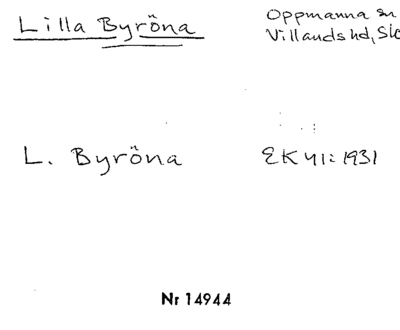 Lilla Byröna
Oppmanna sn
Villands hd,
L. Byröna
EK 41:1931
Nr 14944